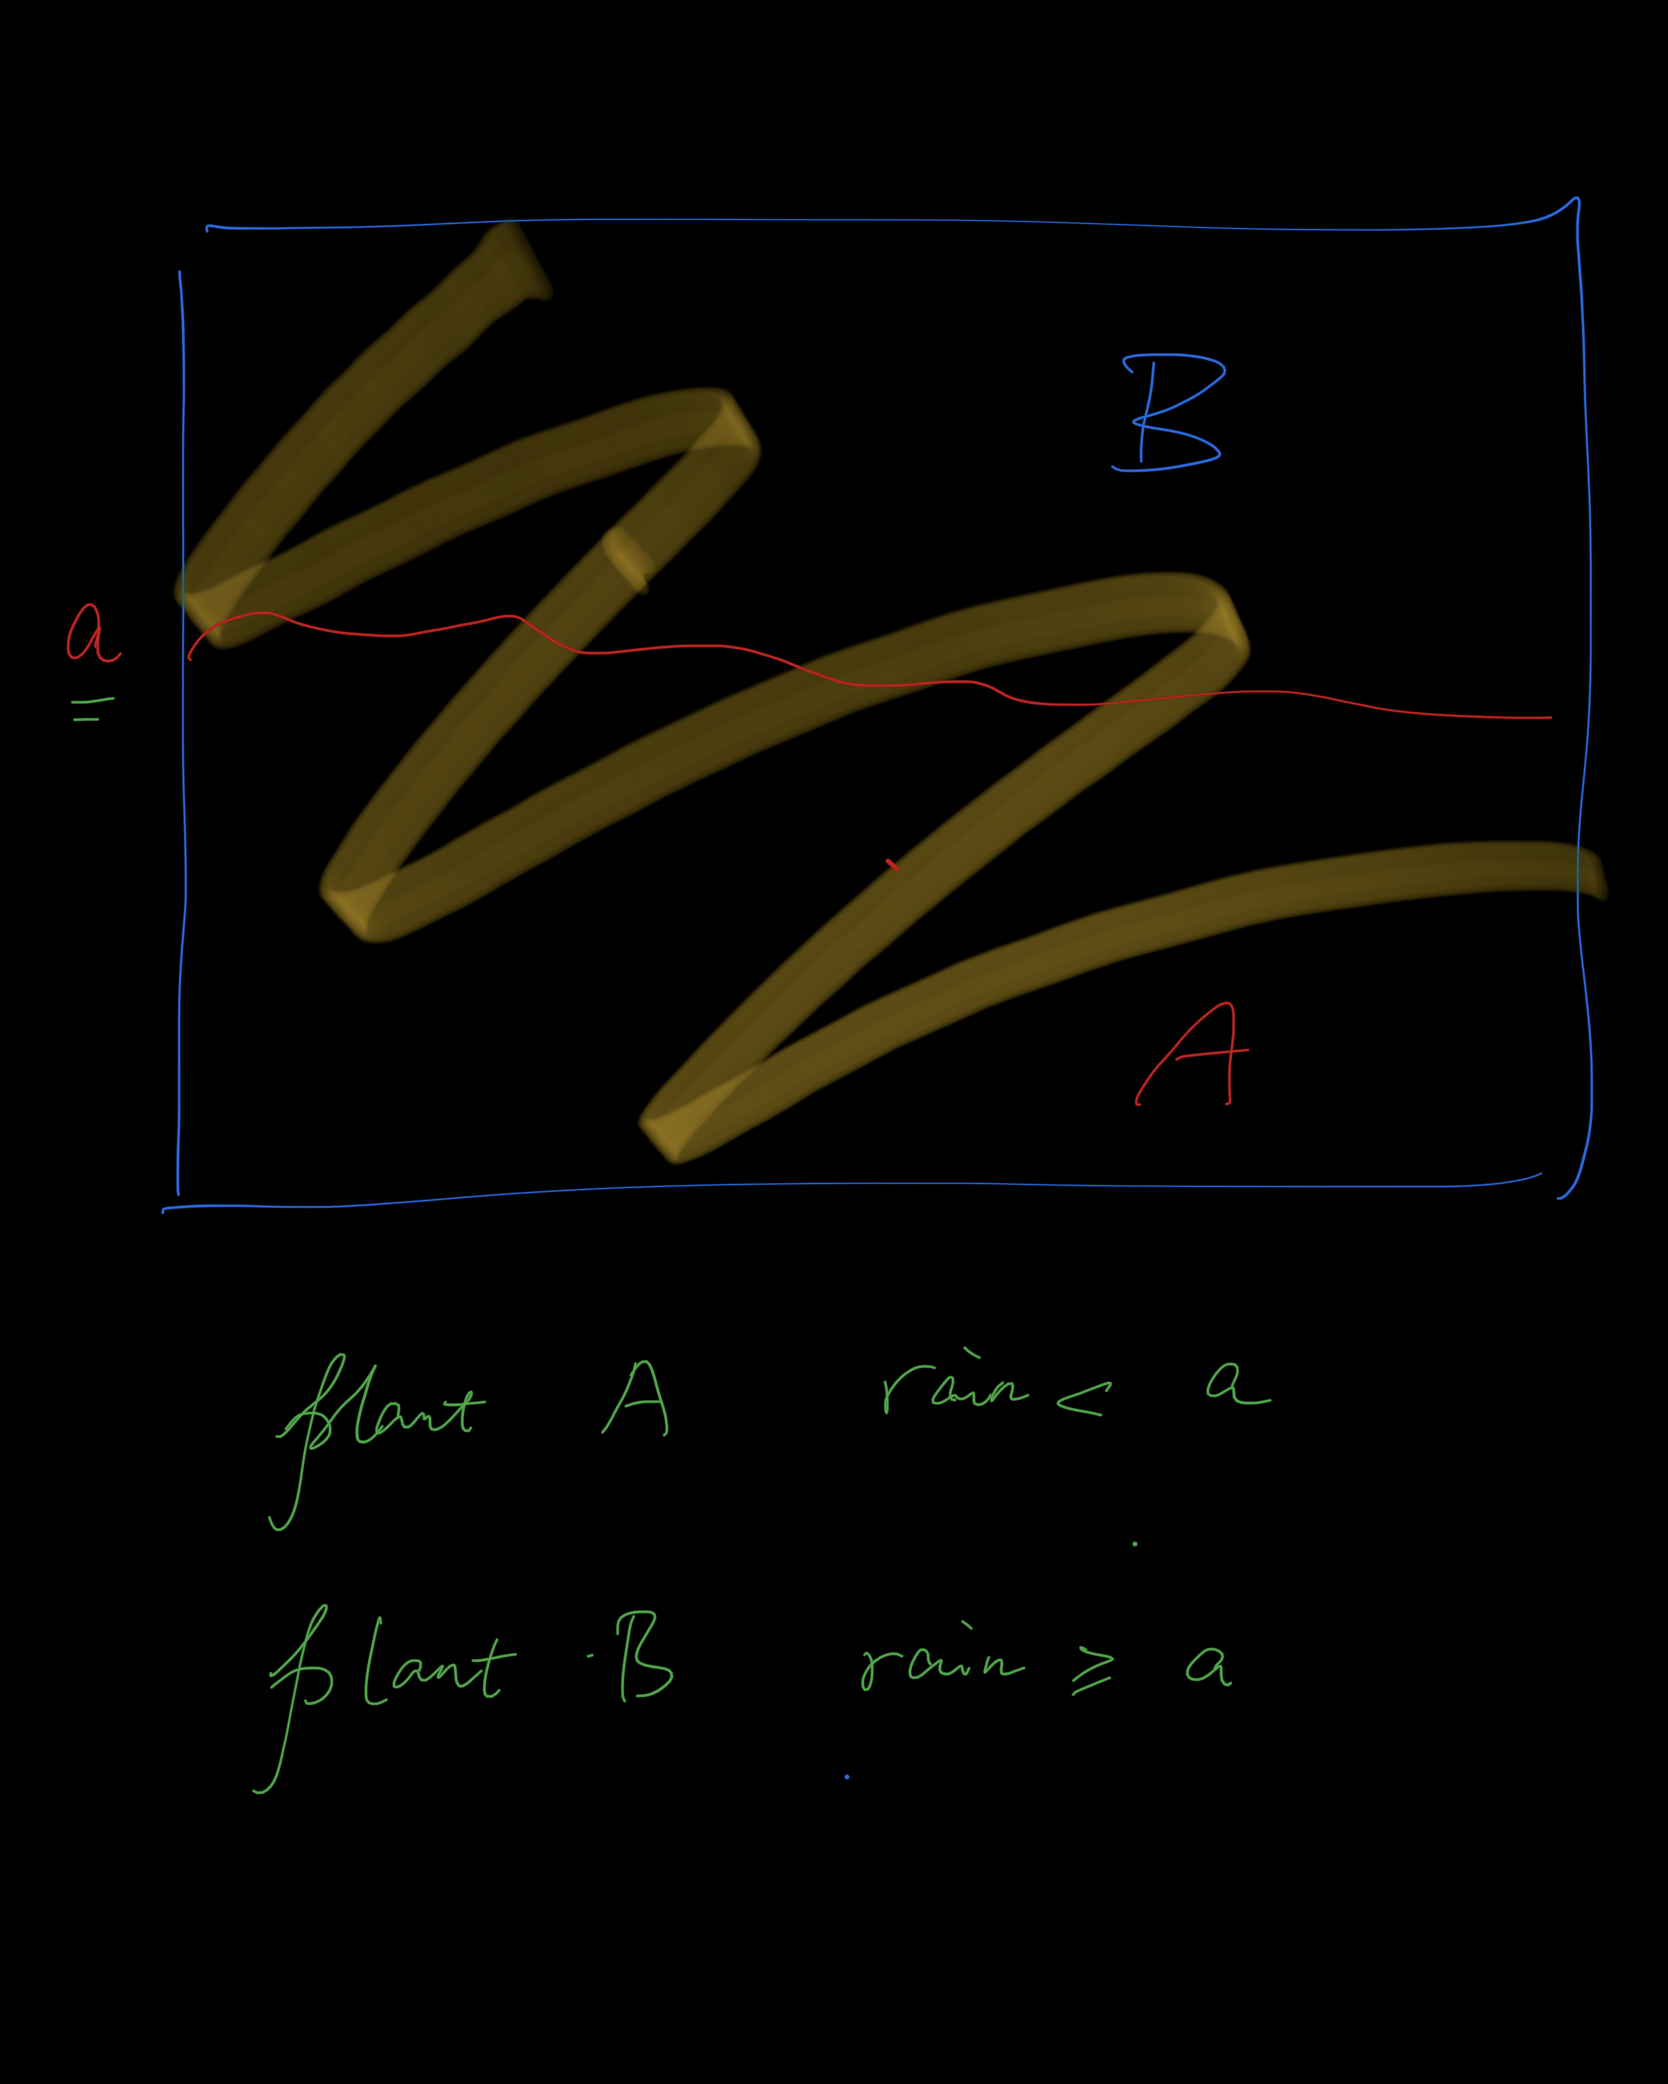 B
a
A
plant A rain < a
plant B rain ≥ a